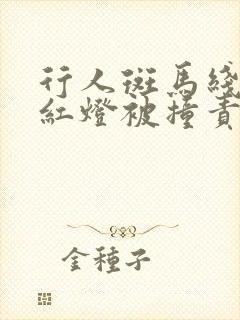 行人斑馬綫
紅燈被撞責
金種子